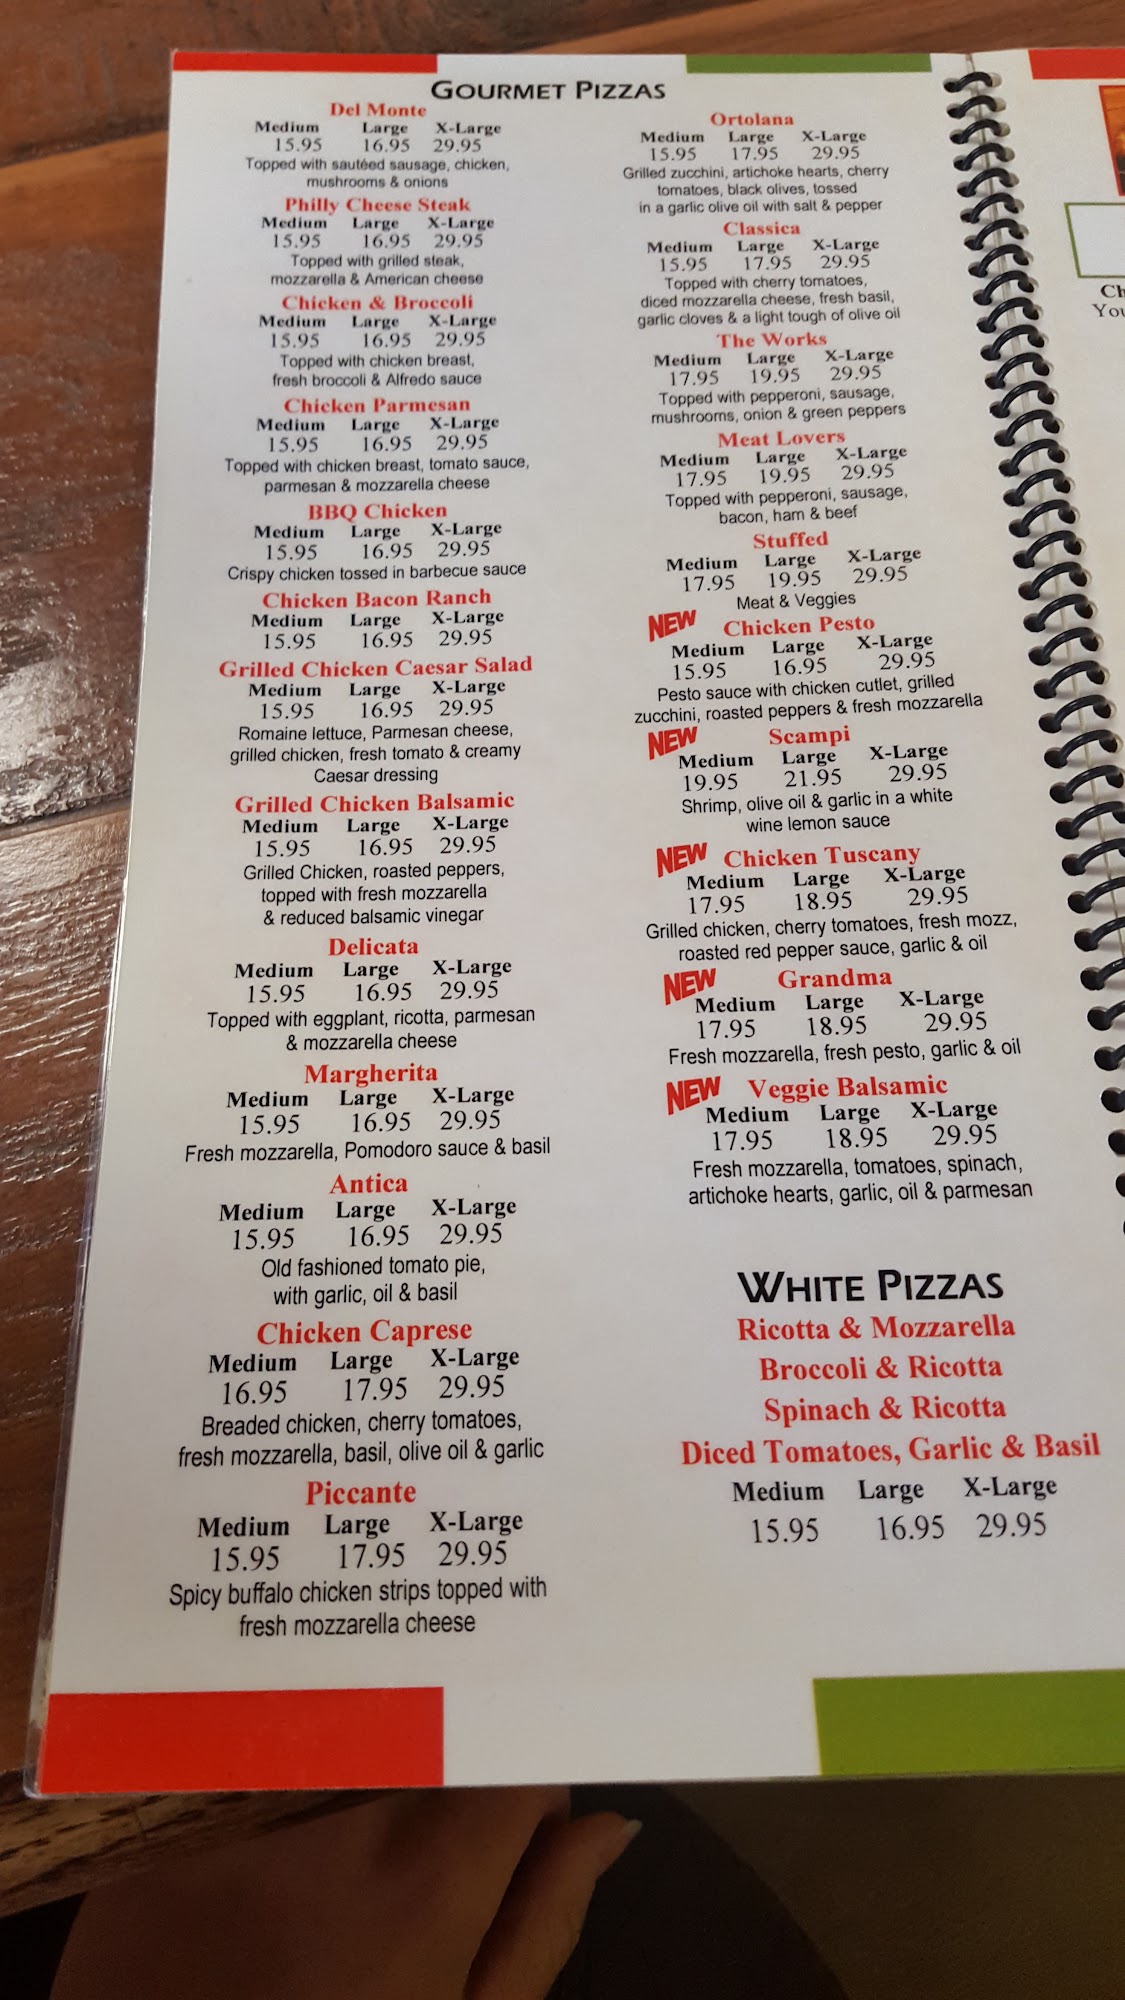 GOURMET PIZZAS
Del Monte
Medium Large X-Large
15.95 16.95 29.95
Topped with sautéed sausage, chicken,
mushrooms & onions
Philly Cheese Steak
Medium Large X-Large
15.95 16.95 29.95
Topped with grilled steak,
mozzarella & American cheese
Chicken & Broccoli
Medium Large X-Large
15.95 16.95 29.95
Topped with chicken breast,
fresh broccoli & Alfredo sauce
Chicken Parmesan
Medium Large X-Large
15.95 16.95 29.95
Topped with chicken breast, tomato sauce,
parmesan & mozzarella cheese
BBQ Chicken
Medium Large X-Large
15.95 16.95 29.95
Crispy chicken tossed in barbecue sauce
Chicken Bacon Ranch
Medium Large X-Large
15.95 16.95 29.95
Grilled Chicken Caesar Salad
Medium Large X-Large
15.95 16.95 29.95
Romaine lettuce, Parmesan cheese,
grilled chicken, fresh tomato & creamy
Caesar dressing
Grilled Chicken Balsamic
Medium Large X-Large
15.95 16.95 29.95
Grilled Chicken, roasted peppers,
topped with fresh mozzarella
& reduced balsamic vinegar
Delicata
Medium Large X-Large
15.95 16.95 29.95
Topped with eggplant, ricotta, parmesan
& mozzarella cheese
Margherita
Medium Large X-Large
15.95 16.95 29.95
Fresh mozzarella, Pomodoro sauce & basil
Antica
Medium Large X-Large
15.95 16.95 29.95
Old fashioned tomato pie,
with garlic, oil & basil
Chicken Caprese
Medium Large X-Large
16.95 17.95 29.95
Breaded chicken, cherry tomatoes,
fresh mozzarella, basil, olive oil & garlic
Piccante
Medium Large X-Large
15.95 17.95 29.95
Spicy buffalo chicken strips topped with
fresh mozzarella cheese
Ortolana
Medium Large X-Large
15.95 17.95 29.95
Grilled zucchini, artichoke hearts, cherry
tomatoes, black olives, tossed
in a garlic olive oil with salt & pepper
Classica
Medium Large X-Large
15.95 17.95 29.95
Topped with cherry tomatoes,
diced mozzarella cheese, fresh basil,
garlic cloves & a light tough of olive oil
The Works
Medium Large X-Large
17.95 19.95 29.95
Topped with pepperoni, sausage,
mushrooms, onion & green peppers
Meat Lovers
Medium Large X-Large
17.95 19.95 29.95
Topped with pepperoni, sausage,
bacon, ham & beef
Stuffed
Medium Large X-Large
17.95 19.95 29.95
Meat & Veggies
NEW Chicken Pesto
Medium Large X-Large
15.95 16.95 29.95
Pesto sauce with chicken cutlet, grilled
zucchini, roasted peppers & fresh mozzarella
NEW Scampi
Medium Large X-Large
19.95 21.95 29.95
Shrimp, olive oil & garlic in a white
wine lemon sauce
NEW Chicken Tuscany
Medium Large X-Large
17.95 18.95 29.95
Grilled chicken, cherry tomatoes, fresh mozz,
roasted red pepper sauce, garlic & oil
NEW Grandma
Medium Large X-Large
17.95 18.95 29.95
Fresh mozzarella, fresh pesto, garlic & oil
NEW Veggie Balsamic
Medium Large X-Large
17.95 18.95 29.95
Fresh mozzarella, tomatoes, spinach,
artichoke hearts, garlic, oil & parmesan
WHITE PIZZAS
Ricotta & Mozzarella
Broccoli & Ricotta
Spinach & Ricotta
Diced Tomatoes, Garlic & Basil
Medium Large X-Large
15.95 16.95 29.95